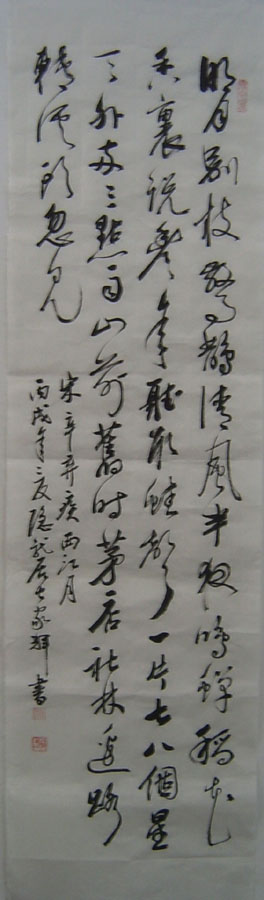 明月别枝驚鵲清風半夜鳴蟬稻花
香裏説豐年聽取蛙聲一片七八個星
天外兩三點雨山前舊時茅店社林邊路
轉溪頭忽見
宋辛弃疾西江月
丙戌年之夏隐龍居士家輝書